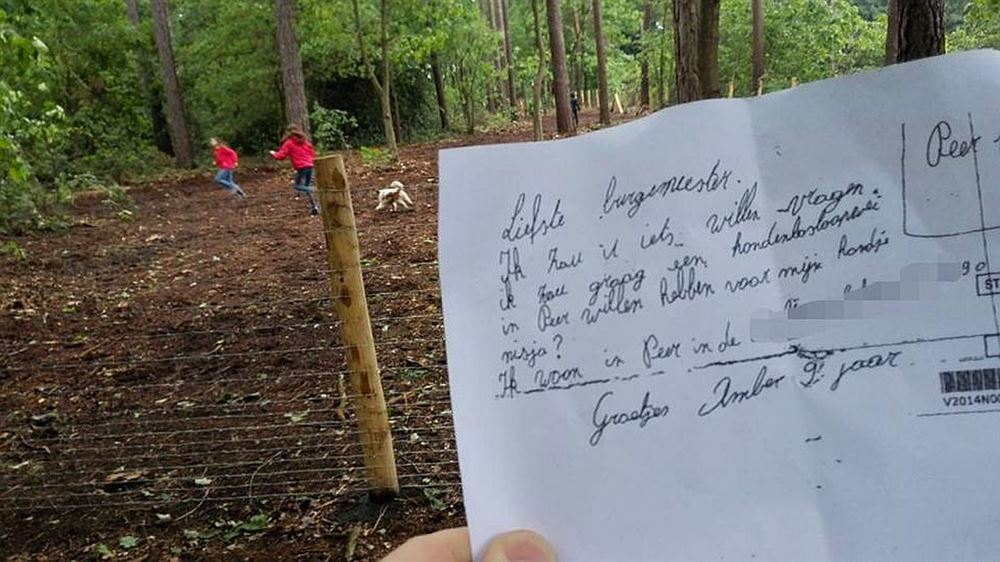 Peer
Liefste burgemeester.
Ik zou u iets willen vragen.
ik zou graag een hondenloslaapwei
in Peer willen hebben voor mijn hondje
nisja?
Ik woon in Peer in de
Groetjes Amber 9 jaar
ST
V2014N00